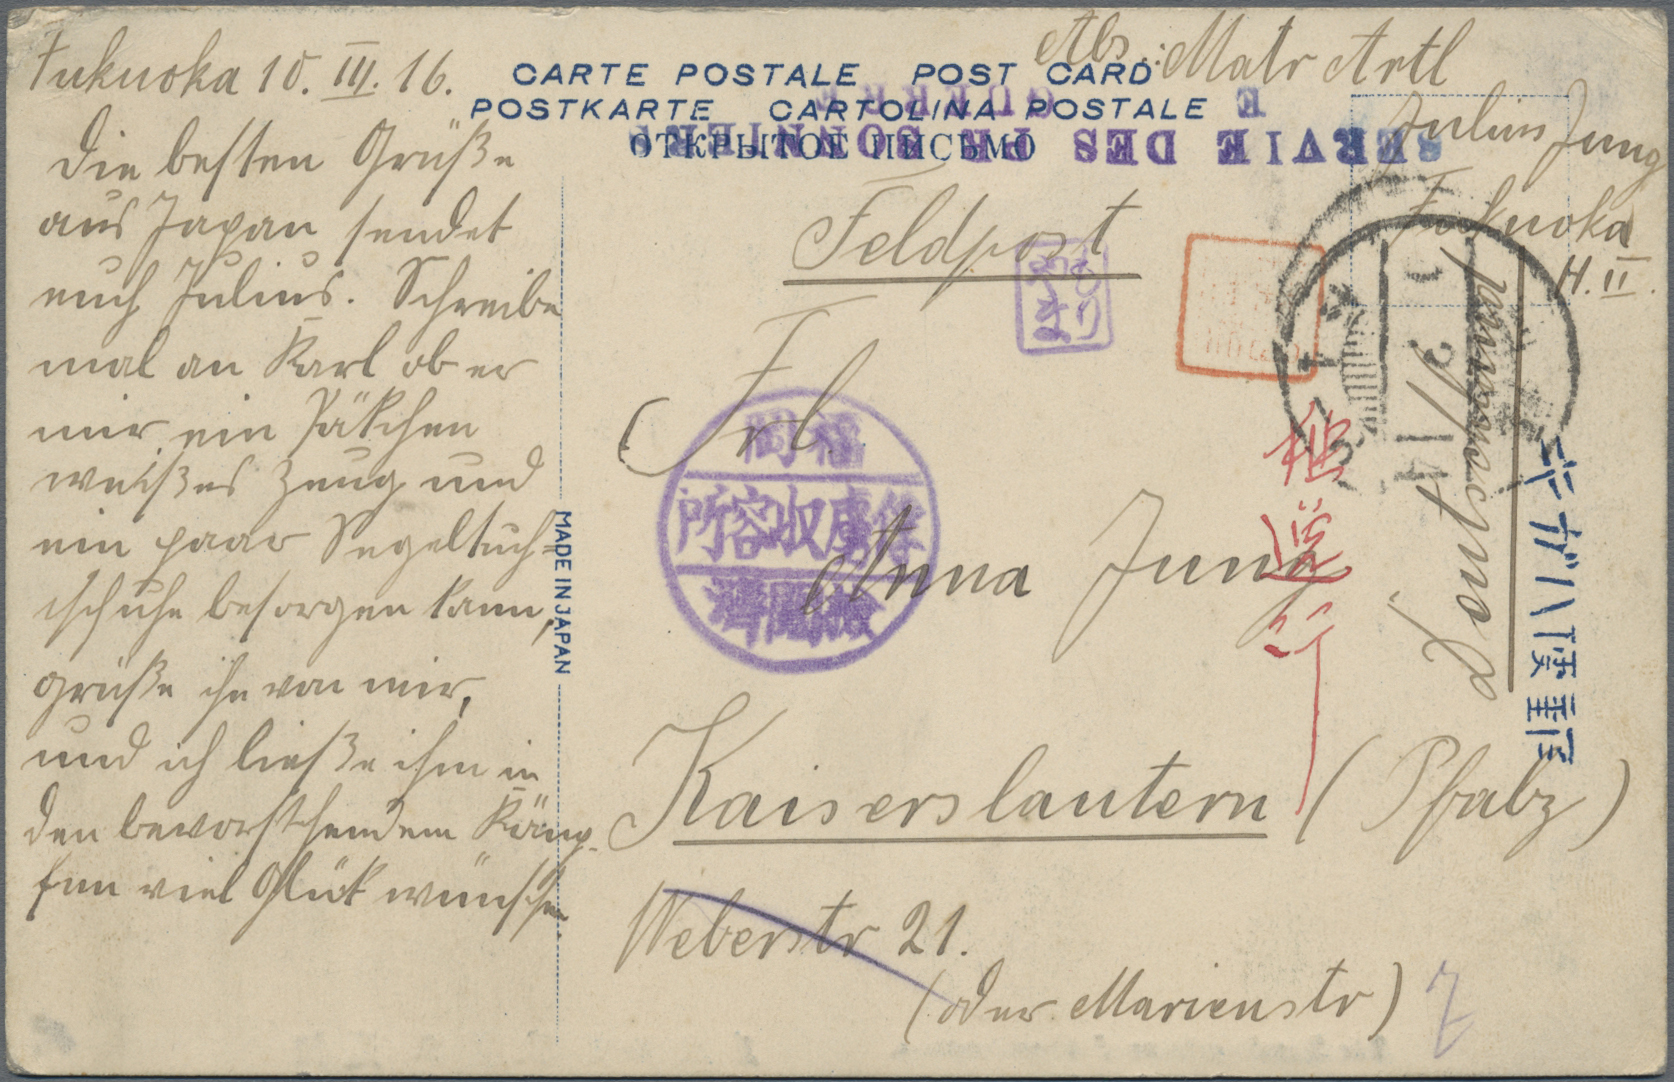 Fukuoka 10. III. 16.
Die besten Grüße
aus Japan sendet
euch Julius. Schreibe
mal an Karl ob er
mir ein Päkchen
weißes Zeug und
ein paar Segeltuch=
schuhe besorgen kann,
grüße ihn von mir,
und ich ließe ihm in
den bevorstehendem Kämp-
fen viel Glück wünschen.
CARTE POSTALE POST CARD
POSTKARTE CARTOLINA POSTALE
ОТКРЫТОЕ ПИСЬМО
SERVIE DES PRISONNIERS
E GUERRE
Abs.: Matr Artl
Julius Jung
Fukuoka
H. II.
Feldpost
Frl.
Anna Jung
Kaiserslautern (Pfalz)
Weberstr 21.
(oder Marienstr)
MADE IN JAPAN
福岡
俘虜収容所
検閲濟
きがハ便郵